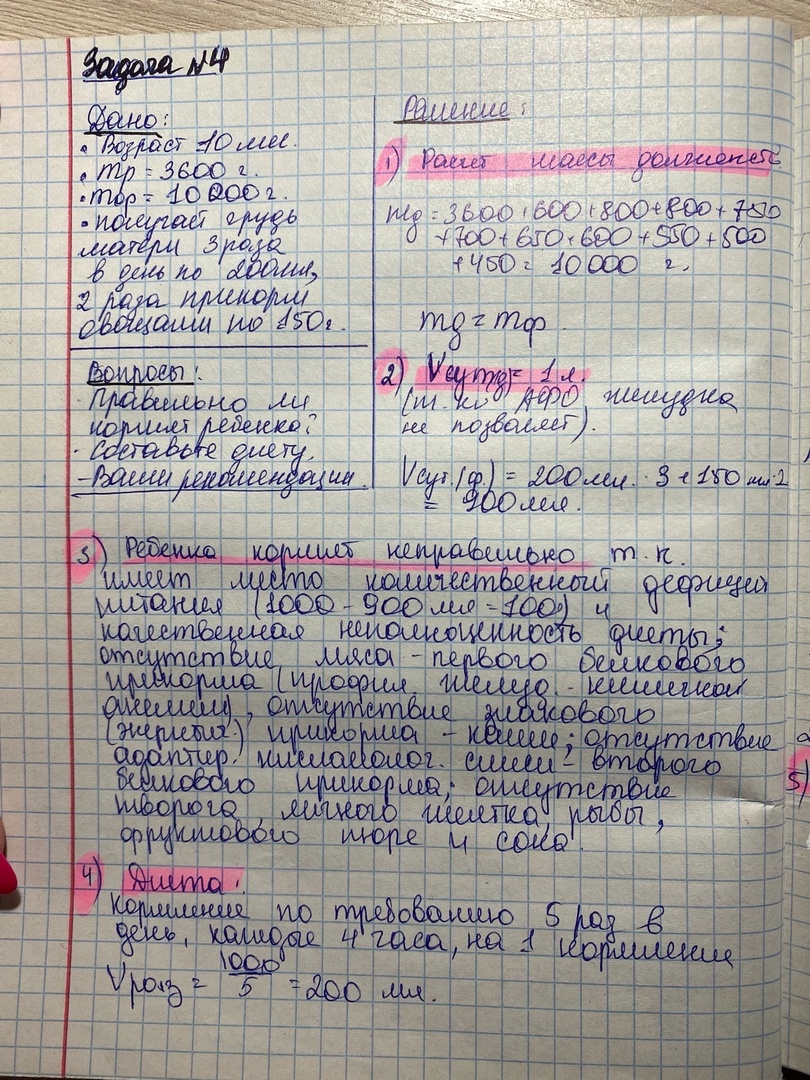 Задача №4
Дано:
• Возраст 10 мес.
• mр = 3600 г.
• mф = 10 000 г.
• получает грудь
матери 3 раза
в день по 200мл,
2 раза прикорм
овощами по 150г.
Вопросы:
Правильно ли
кормят ребенка?
· Составьте диету.
- Ваши рекомендации
Решение:
1) Расчет массы долженств
mд = 3600+600+800+800+750
+700+650+600+550+500
+450 = 10000 г.
mд = mф
2) Vсут(д) = 1 л.
(т.к. АФО желудка
не позволяет).
Vсут.(ф.) = 200мл. · 3 + 150 мл·2
= 900мл.
3) Ребенка кормят неправильно т.к.
имеет место количественный дефицит
питания (1000 - 900 мл = 100) и
качественная неполноценность диеты;
отсутствие мяса - первого белкового
прикорма (профил. железо-
анемии), отсутствие злакового
прикорма - каши; отсутствие
адаптир. кисломолоч. смеси - второго
белкового прикорма; отсутствие
творога, яичного желтка, рыбы,
фруктового пюре и сока.
4) Диета:
кормление по требованию 5 раз в
день, каждые 4 часа, на 1 кормление
Vраз = 1000/5 = 200 мл.
5)